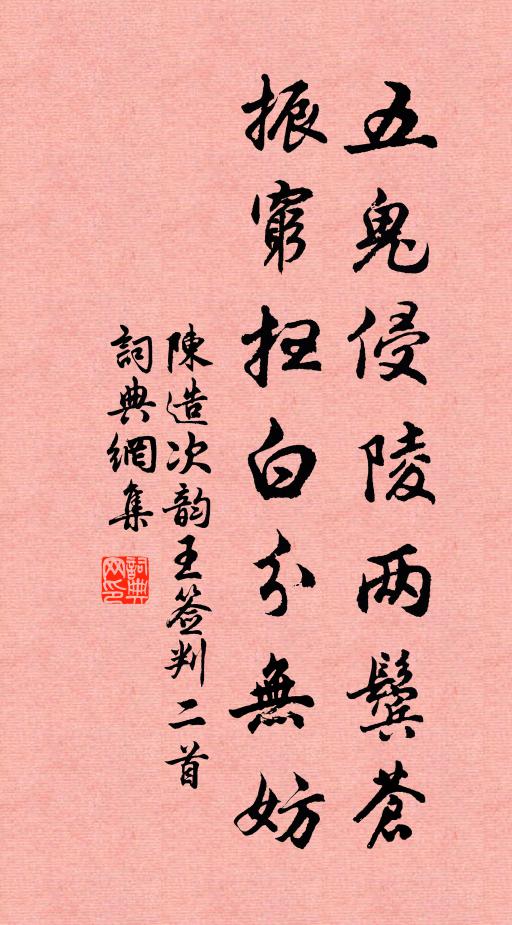 五鬼侵陵两鬓蒼
振窮扫白分無妨
陳造次韵王签判二首
詞典網集
詞典网印